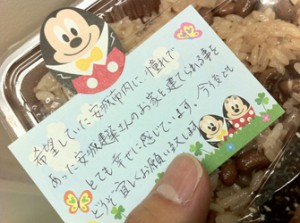 希望していた安城市内に、憧れで
あった安城建築さんのお家を建てられる事を
とても幸せに感じています。今後とも
どうぞ宜しくお願い致します